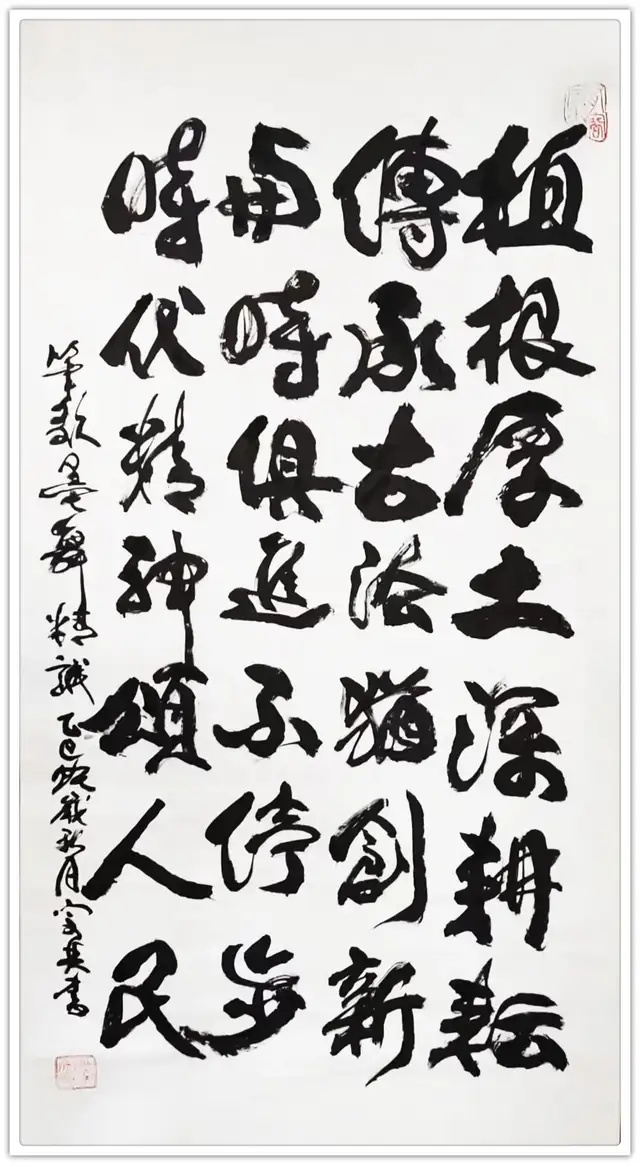 植根厚土深耕耘
傳承古法猶創新
與時俱進不停步
時代精神頌人民
筆歌墨舞精誠乙巳蛇歲秋月宗英書